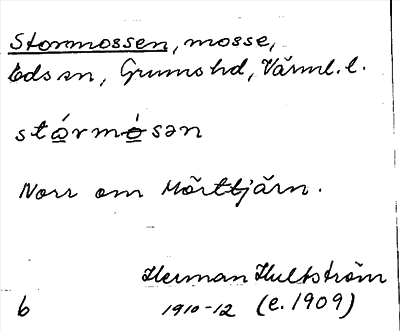 Stormossen, mosse,
Eds sn, Grums hd, Värml. l.
stó̲rmó̲sən
Norr om Mörttjärn.
Herman Hultström
6 1910-12 (e. 1909)